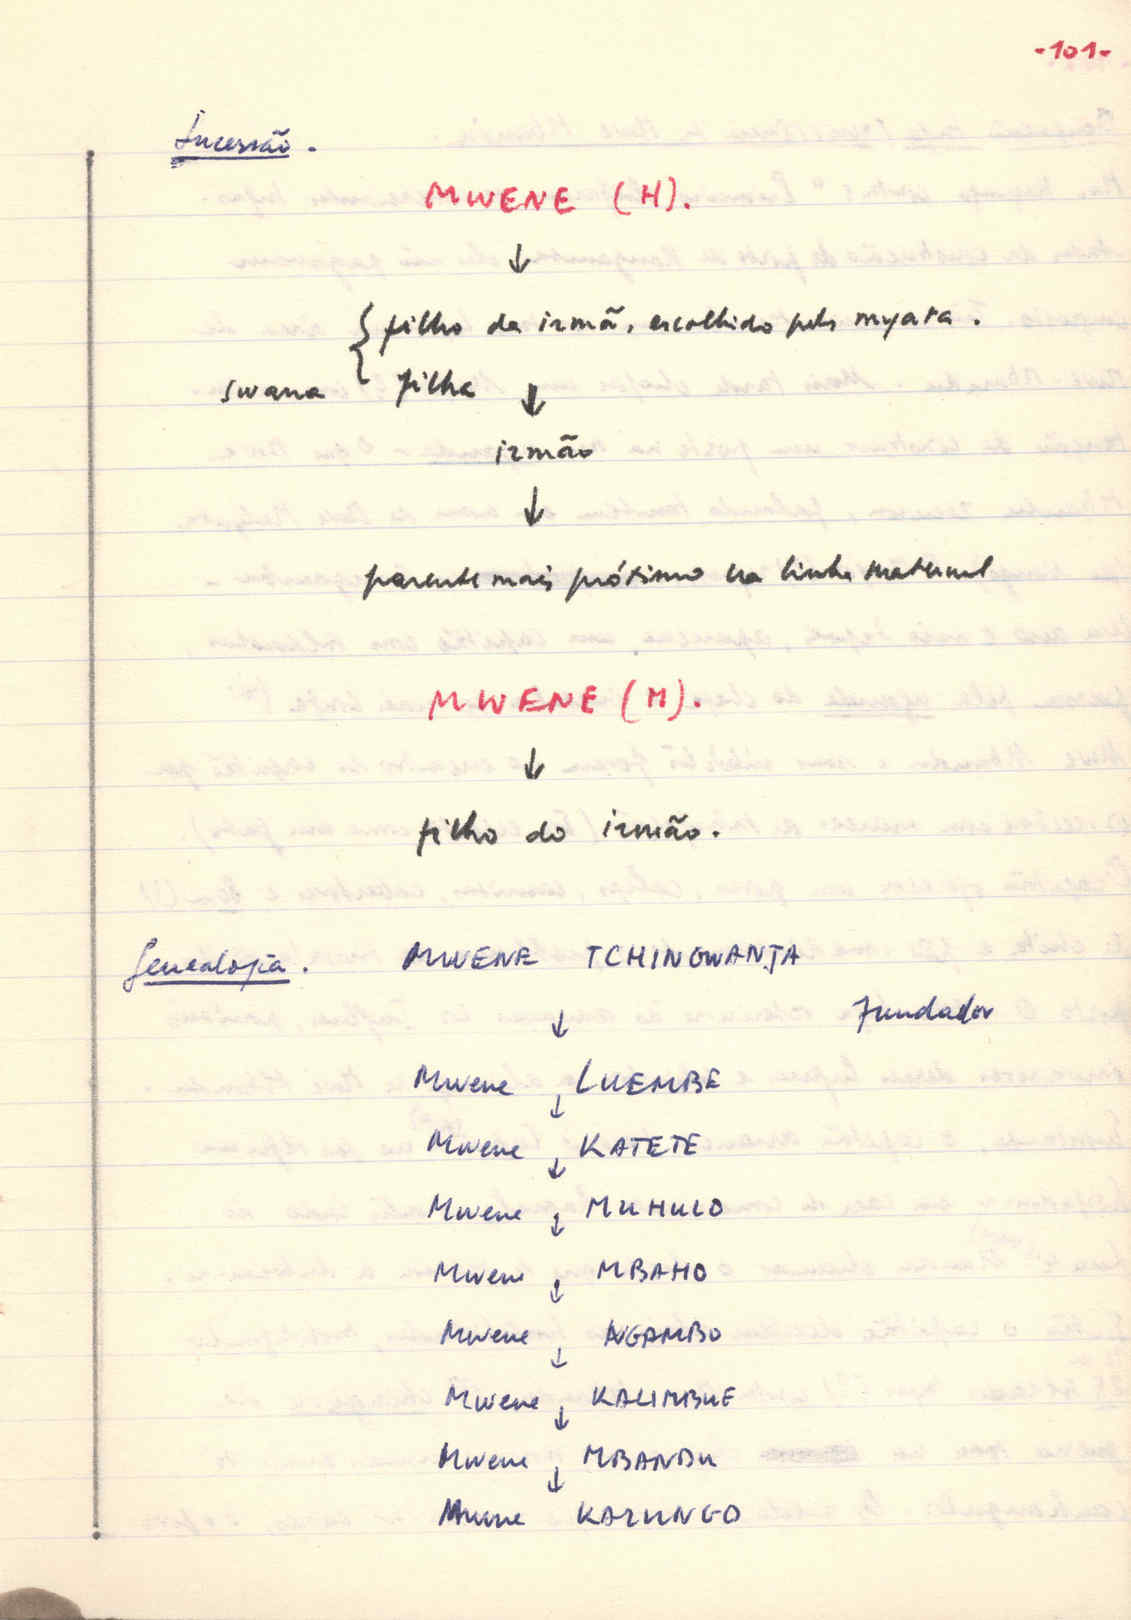 -101-
Sucessão.
MWENE (H).
↓
filho da irmã, escolhido pelos myata.
swana filha ↓
irmão
↓
parente mais próximo na linha maternal
MWENE (M).
↓
filho do irmão.
Genealogia. MWENE TCHINGWANJA
↓ Fundador
Mwene LUEMBE
↓
Mwene KATETE
↓
Mwene MUHULO
↓
Mwene MBAHO
↓
Mwene NGAMBO
↓
Mwene KALIMBUE
↓
Mwene MBANBU
↓
Mwene KAZUNGO